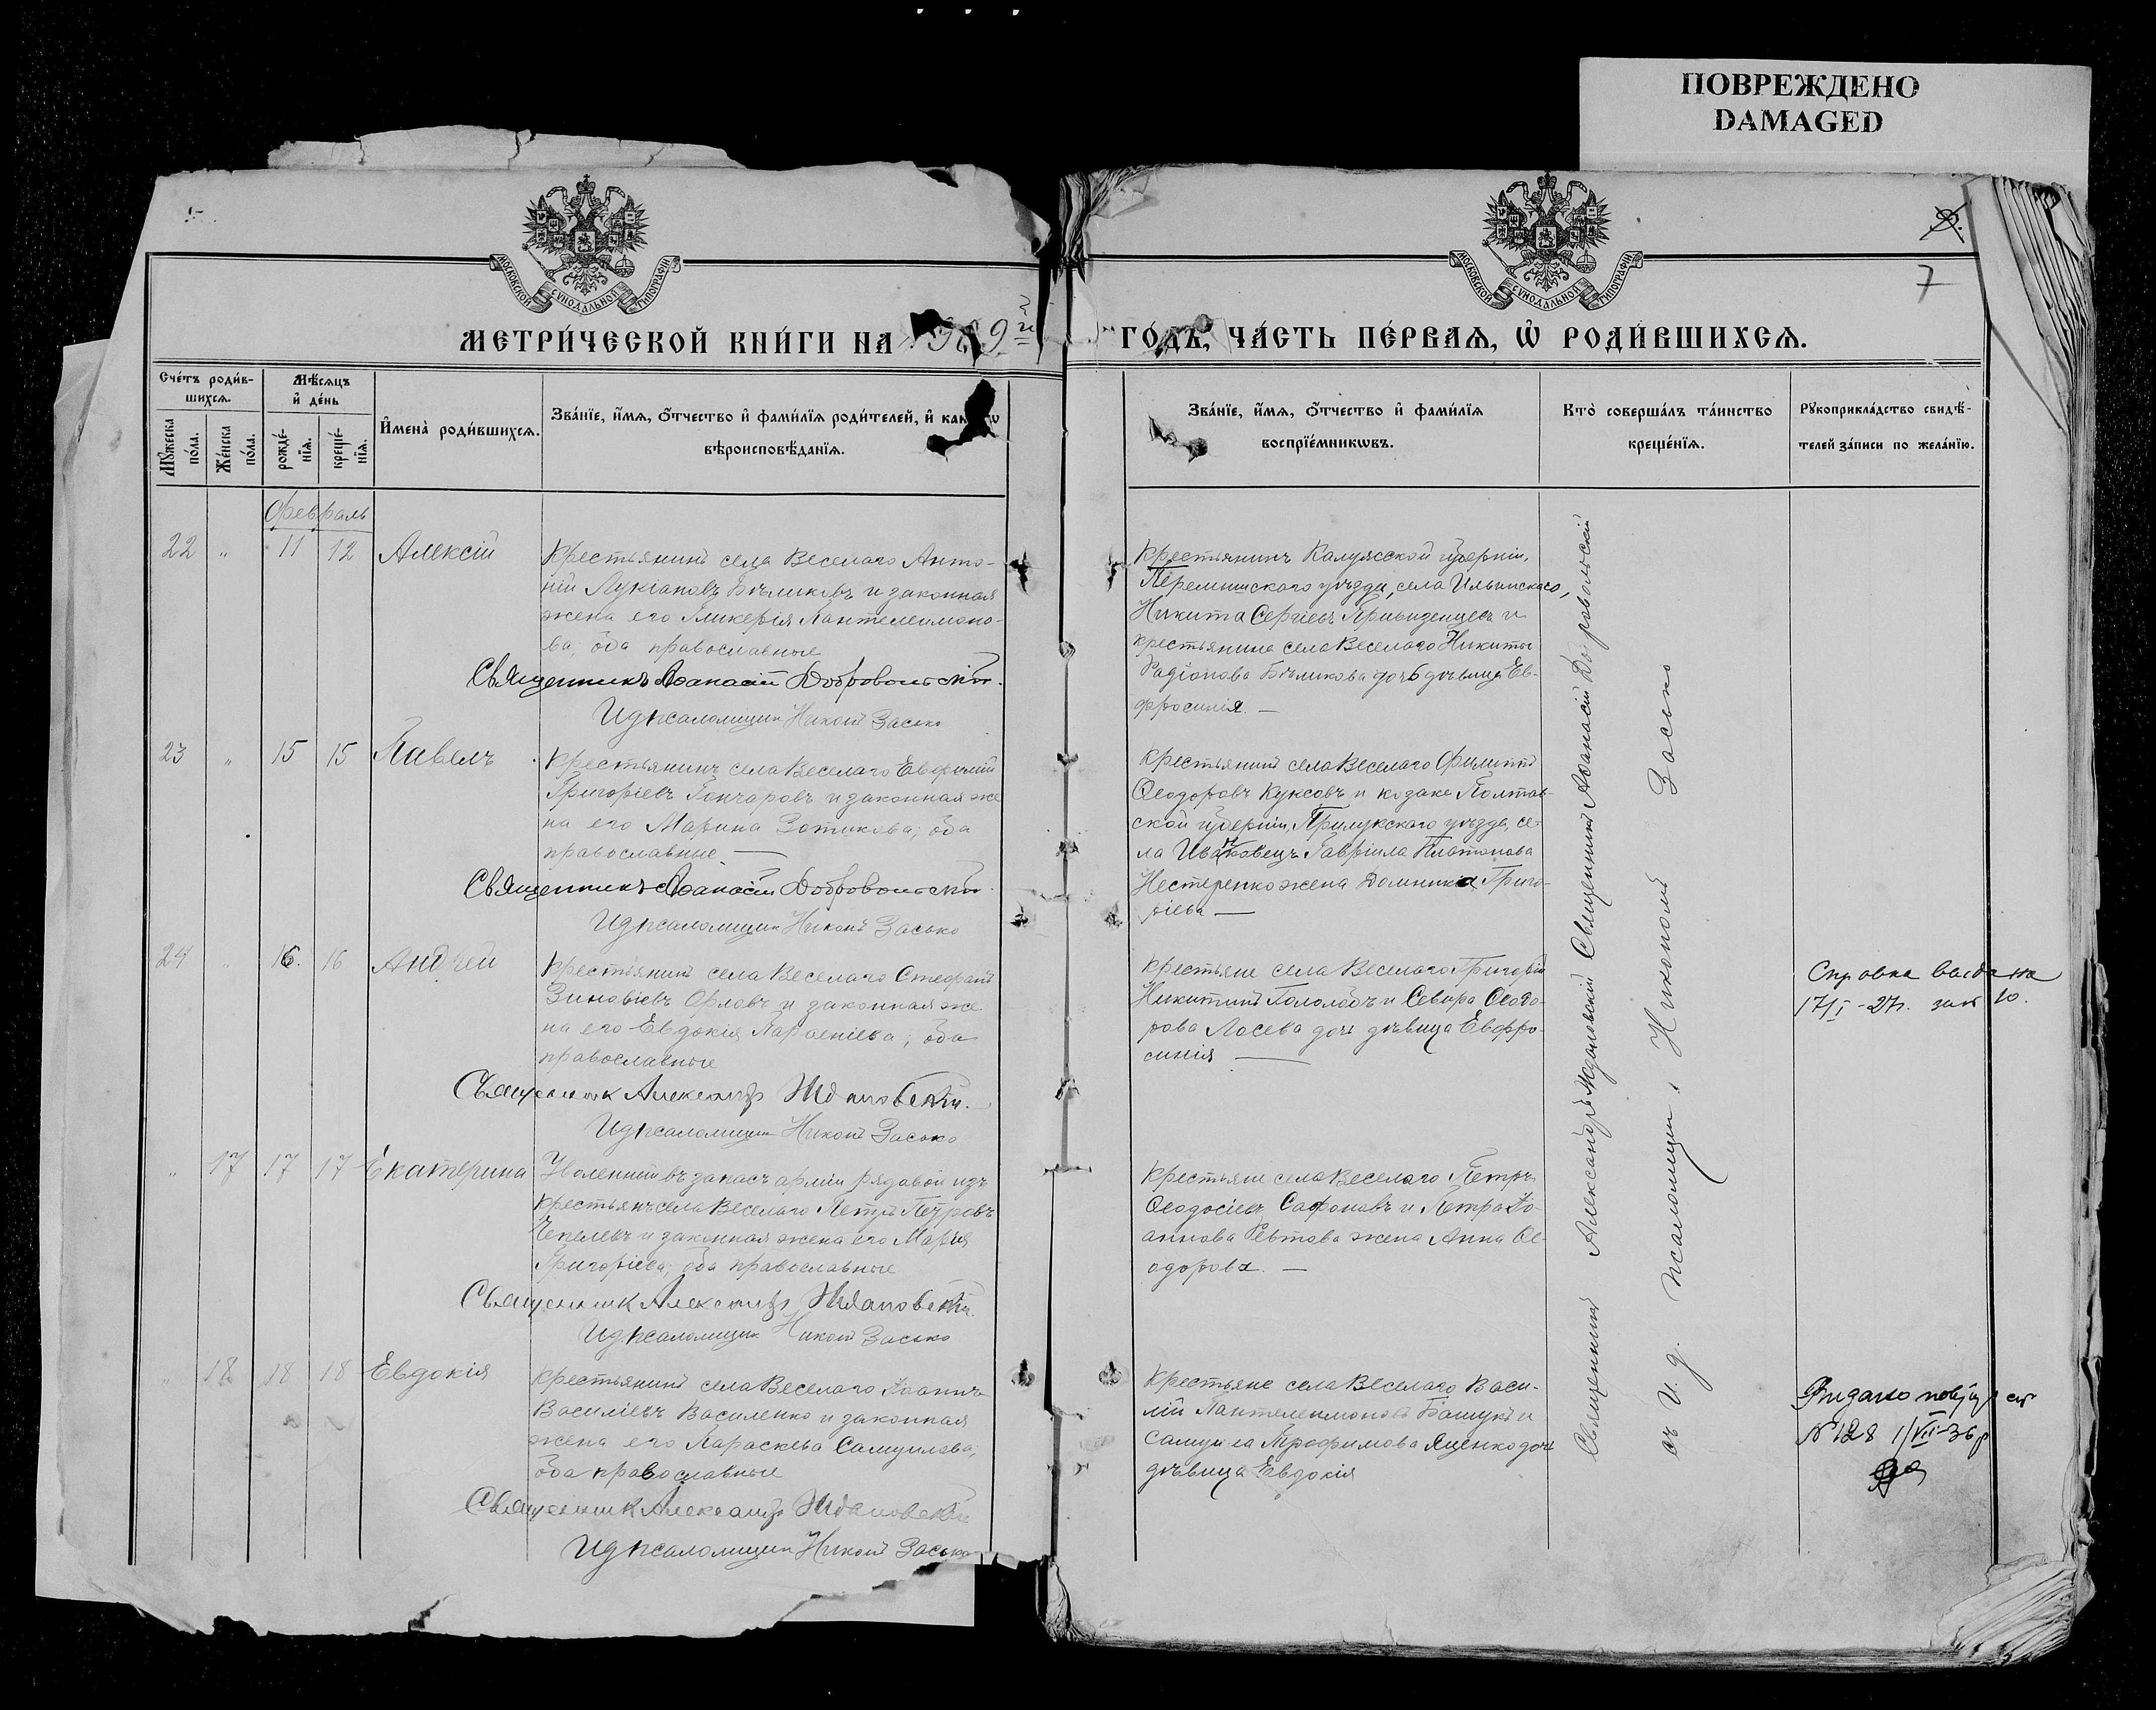 ПОВРЕЖДЕНО
DAMAGED
МОСКОВСКОЙ СѴНОДАЛЬНОЙ ТИПОГРАФІИ
МОСКОВСКОЙ СѴНОДАЛЬНОЙ ТИПОГРАФІИ
7
МЕТРИ́ЧЕСКОЙ КНИ́ГИ НА 1909 й
ГО́ДЪ, ЧА́СТЬ ПЕ́РВАЯ, Ѡ҆ РОДИ́ВШИХСЯ.
Сче́тъ роди́в-
шихся.
Мꙋжеска по́ла.
Же́нска по́ла.
Мѣ́сяцъ
и҆ де́нь
рожде́-
нїя.
креще́-
нїя.
И҆мена̀ роди́вшихся.
Зва́нїе, и҆́мя, ѻ҆́тчество и҆ фами́лїя роди́телей, и҆
вѣроисповѣ́данїя.
Зва́нїе, и҆́мя, ѻ҆́тчество и҆ фами́лїя
воспрїе́мникѡвъ.
Кто̀ соверша́лъ та́инство
креще́нїя.
Рꙋкоприкла́дство свидѣ́-
телей за́писи по жела́нїю.
Февраль
22 " 11 12 Алексій
Крестьянинъ села Веселаго Анто-
ній Лукіановъ Бѣликовъ и законная
жена его Гликерія Пантелеимоно-
ва, оба православные
Священникъ Аѳанасій Добровольскій.
И д псаломщик Никон Засько
Крестьянинъ Калужской губерніи,
Перемышскаго уѣзда, села Ильинскаго,
Никита Сергіевъ и
крестьянина села Веселаго Никиты
Радіонова Бѣликова дочь дѣвица Ев-
фросинія. —
23 " 15 15 Павелъ
Крестьянинъ села Веселаго Евфимій
Григоріевъ Гончаровъ и законная же
на его Марина Зотикова; оба
православные —
Священникъ Аѳанасій Добровольскій.
И д псаломщик Никон Засько
Крестьянинъ села Веселаго Филиппъ
Ѳеодоровъ Куксовъ и козака Полтав-
ской губерніи, Прилукскаго уѣзда, се-
ла Иваковецъ Гавріила Платонова
Нестеренко жена Домника Григо-
ріева —
24 " 16. 16 Андрей
Крестьянинъ села Веселаго Стефанъ
Зиновіевъ Орловъ и законная же
на его Евдокія Парѳеніева; оба
православные
Священник Александр Ждановскій.
И д псаломщик Никон Засько
Крестьяне села Веселаго Григорій
Никитинъ Гололобъ и Севира Ѳеодо-
рова Лосева дочь дѣвица Евфро-
синія —
Справка выдана
17/I - 27 г. за № 10.
" 17 17 17 Екатерина
Уволенный въ запасъ арміи рядовой изъ
крестьянъ села Веселаго Петръ Петровъ
Чепелевъ и законная жена его Марія
Григоріева; оба православные
Священник Александр Ждановскій.
И д псаломщик Никон Засько
Крестьяне села Веселаго Петръ
Ѳеодосіевъ Сафоновъ и Петра Іо-
аннова Ревтова жена Анна Ѳе-
одорова. —
" 18 18 18 Евдокія
Крестьянинъ села Веселаго Іоаннъ
Василіевъ Василенко и законная
жена его Параскева Самуилова,
оба православные
Священник Александр Ждановскій
И д псаломщик Никон Засько
Крестьяне села Веселаго Васи-
лій Пантелеимоновъ Башукъ и
Самуила Трофимова Яценко дочь
дѣвица Евдокія
Видано
№ 128 1/VII-36 р
Священники Александръ Ждановскій Священникъ Аѳанасій Добровольскій
съ И. д. псаломщика Никономъ Засько